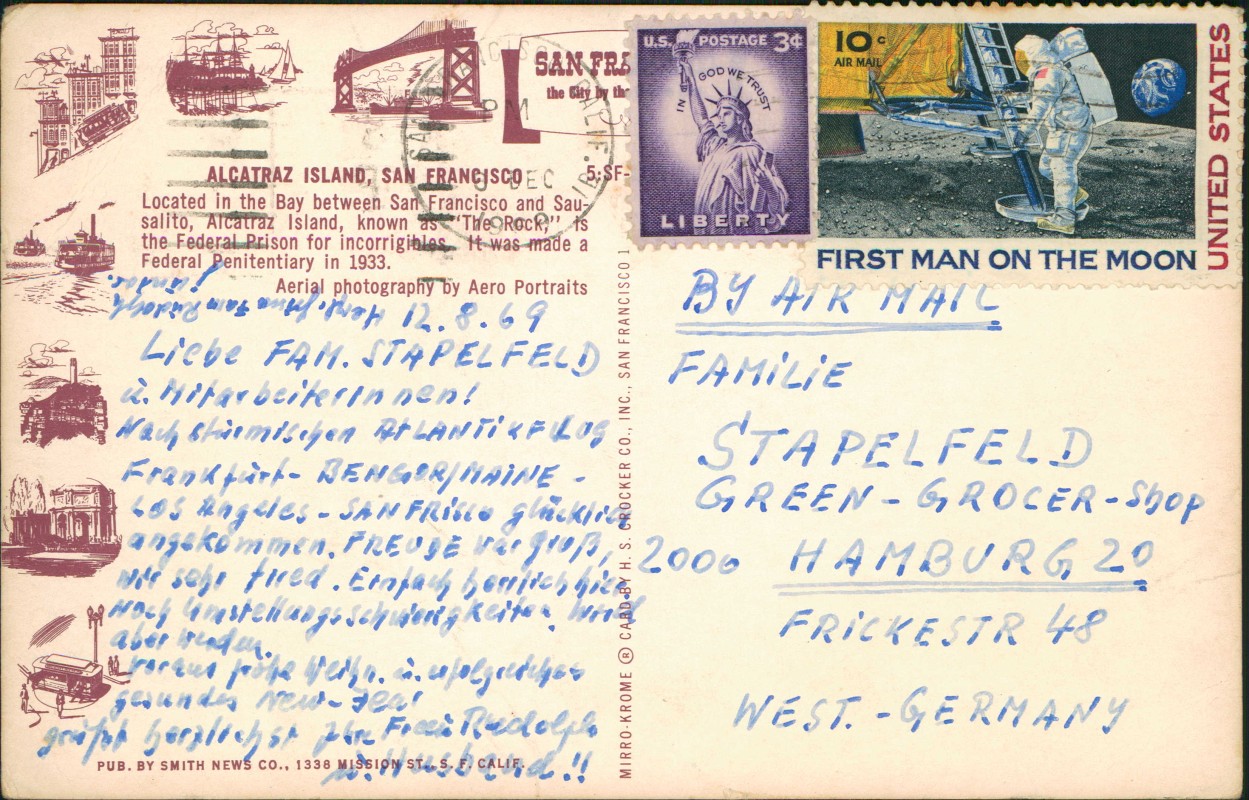 SAN FRA
the City by the
ALCATRAZ ISLAND, SAN FRANCISCO
5:SF-
Located in the Bay between San Francisco and Sau-
salito, Alcatraz Island, known as "The Rock," is
the Federal Prison for incorrigibles. It was made a
Federal Penitentiary in 1933.
Aerial photography by Aero Portraits
12.8.69
Liebe FAM. STAPELFELD
u. MitarbeiterInnen!
Nach stürmischen AtLANTiKFLUG
Frankfurt- BENGOR/MAINE -
Los Angeles - SANFRisco glücklich
angekommen. FREUDE war groß,
wir sehr tired. Einfach herrlich hier
Noch Umstellungsschwierigkeiten. Wird
aber werden.
Voraus frohe Weihn. u. erfolgreiches
gesundes New-Year
grüßt herzlichst Ihre Frau Rudolph
u. Husband!!
PUB. BY SMITH NEWS CO., 1338 MISSION ST., S. F. CALIF.
MIRRO-KROME ® CARD BY H. S. CROCKER CO., INC., SAN FRANCISCO 1
SAN FRANCISCO CALIF.
PM
DEC
U.S. POSTAGE 3¢
IN GOD WE TRUST
LIBERTY
10c
AIR MAIL
UNITED STATES
FIRST MAN ON THE MOON
BY AIR MAIL
FAMiLiE
STAPELFELD
GREEN-GROCER-Shop
2000 HAMBURG 20
FRiCKESTR 48
WEST.-GERMANY